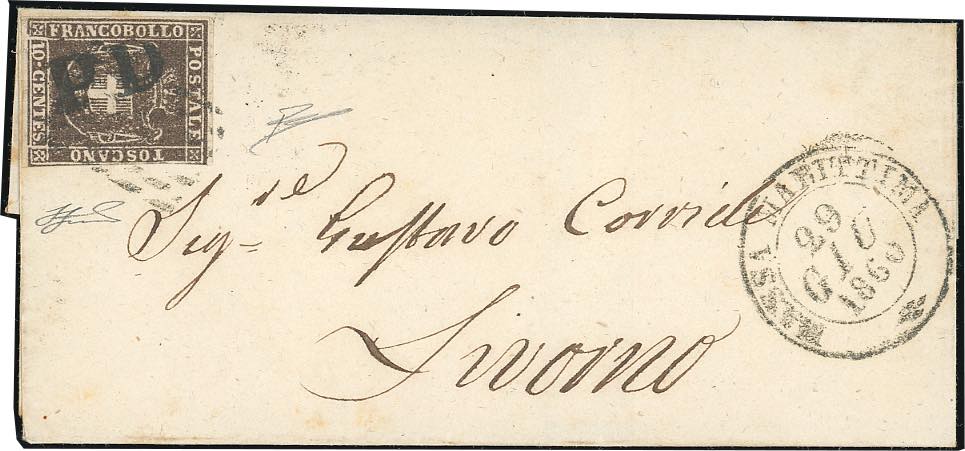 FRANCOBOLLO
10 CENTES
P.D
POSTALE
TOSCANO
Sig.re Gustavo Corridi
Livorno
MASSA MARITTIMA
29
GIU
1860